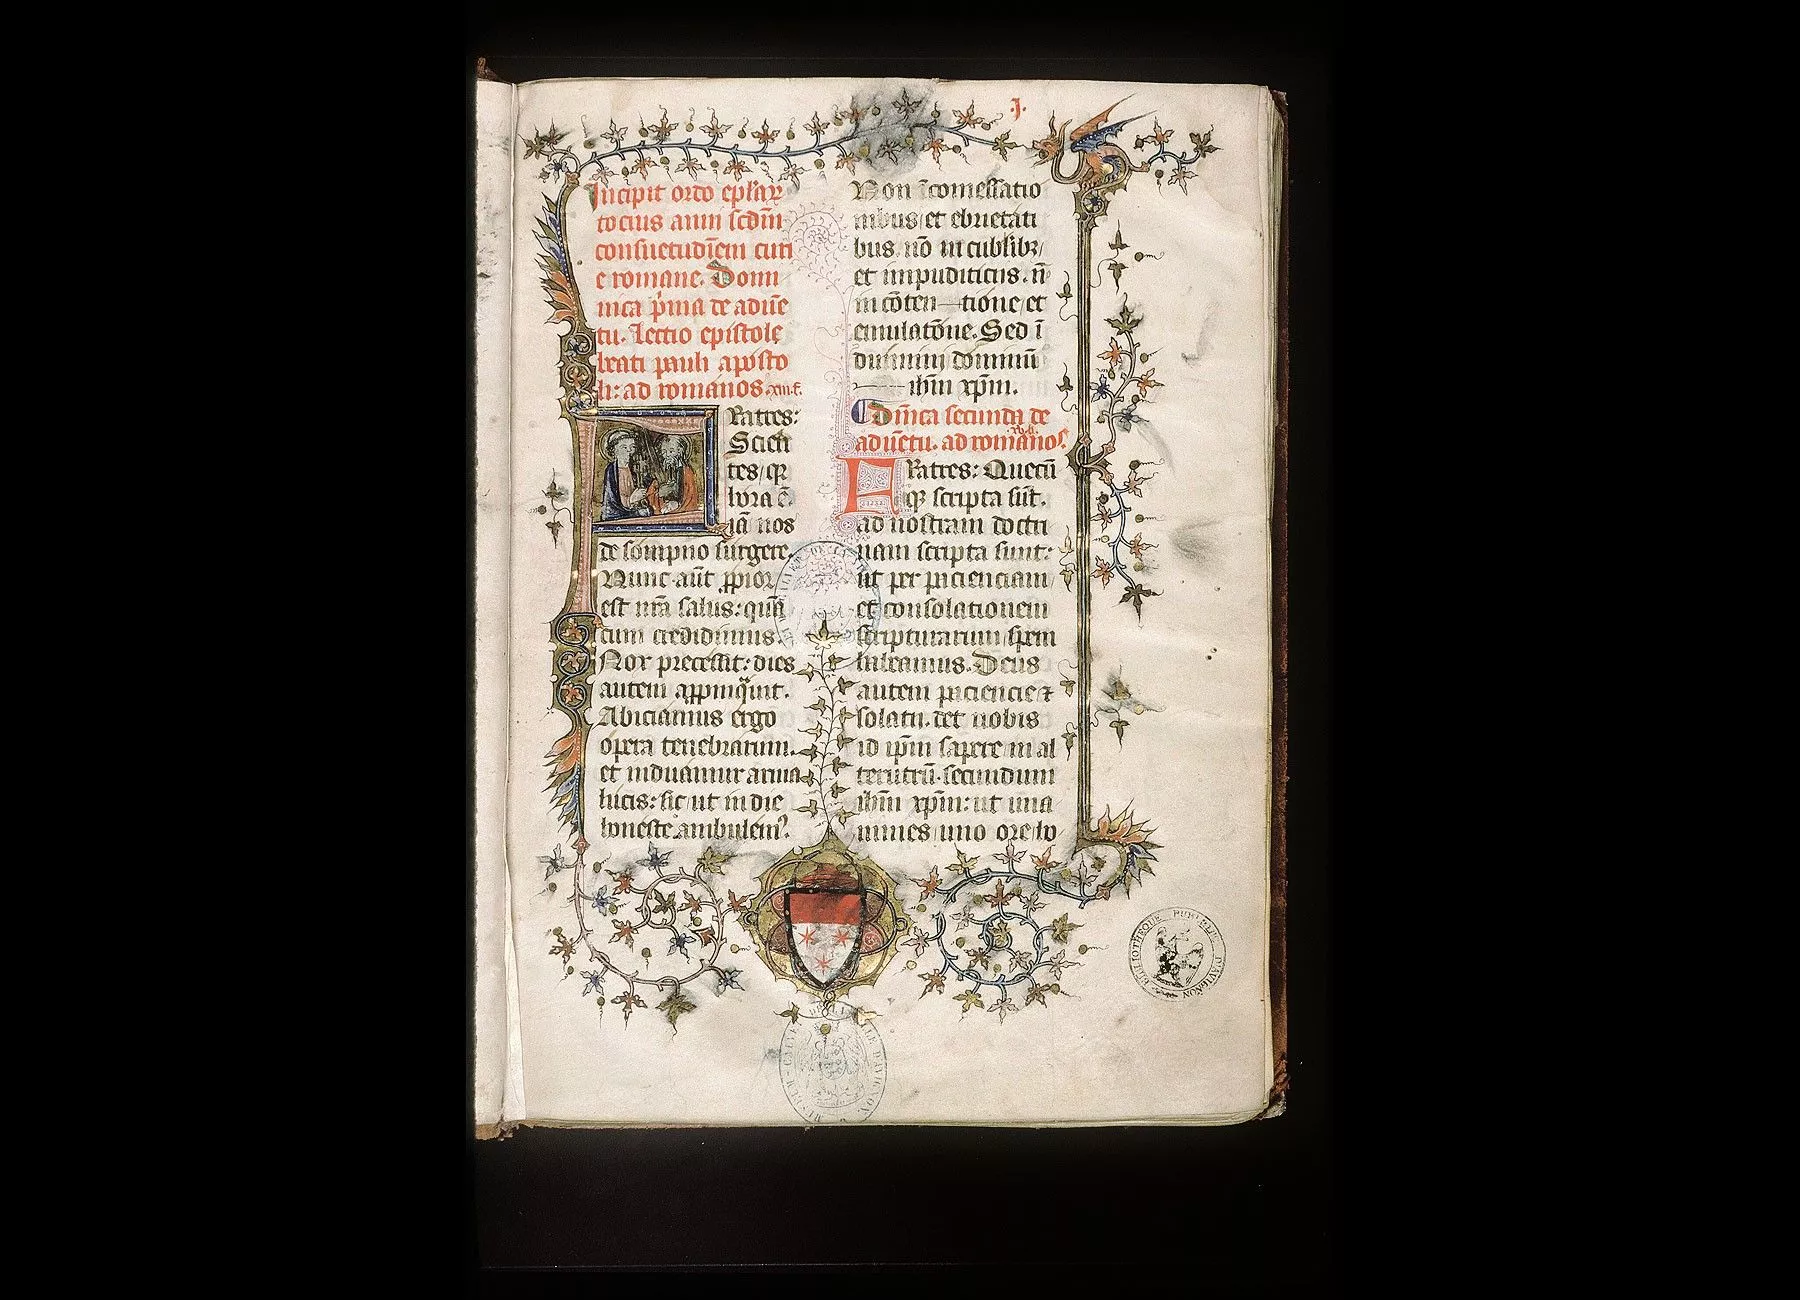 J.
Incipit ordo ep̄lar
tocius anni scd̄m
consuetudīem curi
e romane. Domi
nica p̄ma de aduē
tu. Lectio epistole
beati pauli aposto
li: ad romanos. xiii. c.
Fratres:
Scien
tes, q̄
hora ē.
iā nos
de sompno surgere.
Nunc aūt ꝓpior
est nr̄a salus: quā
cum credidimus.
Nox precessit: dies
autem appinquit.
Abiciamus ergo
opera tenebrarum.
et induamur arma
lucis: sic ut in die
honeste ambulemꝰ.
Non ī comessatio
nibus, et ebrietati
bus. nō in cubilibꝫ,
et impudiciciis. n̄
in cōten—tione, et
emulatōne. Sed ī
duimini dominū
ihm̄ xp̄m.
Dn̄ica secunda de
aduētu. ad romanos.
Fratres: Quecū
qꝫ scripta sūt.
ad nostram doctri
nam scripta sunt:
ut per pacienciam,
et consolationem
scripturarum, spem
habeamus. Deus
autem paciencie ⁊
solatii. det nobis
id ip̄m sapere in al
terutrū. secundum
ihm̄ xp̄m: ut una
nimes, uno ore ho
BIBLIOTHEQUE PUBLIQUE D'AVIGNON
MUSEUM CALVET VILLE D'AVIGNON